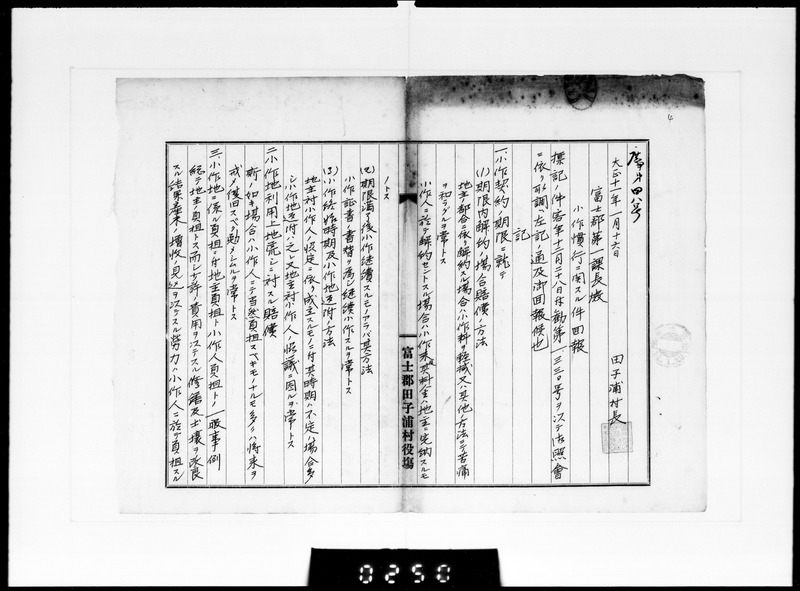 庶第四号
大正十一年一月十六日
田子浦村長
富士郡第一課長殿
小作慣行ニ関スル件回報
標記ノ件客年十二月二十八日付勧第一三三〇号ヲ以テ御照會
ニ依リ取調左記ノ通及御回報候也
記
一、小作契約ノ期限ニ就テ
(1)期限内解約ノ場合賠償ノ方法
地主ノ都合ニ依リ解約スル場合ハ小作料ヲ軽減又ハ其他方法ニテ苦痛
ヲ和ラグルヲ常トス
小作人ニ於テ解約セントスル場合ハ小作米其料全ハ地主ニ完納スルモ
富士郡田子浦村役場
ノトス
(2)期限満了後小作継續スルモノアラバ其方法
小作証書ノ書替ヲ為シ継續小作スルヲ常トス
(3)小作終始時期及小作地返付ノ方法
地主対小作人ノ協定ニ依リ成立スルモノニ付其時期ハ不定ノ場合多
シ小作地返付ハ之レ又地主対小作人ノ協議ニ因ルヲ常トス
二、小作地利用上地荒シニ対スル賠償
斯ノ如キ場合ハ小作人ニテ当然負担スベキモノナルモ多クハ将来ヲ
戒メ復旧スベク勉メシムルヲ常トス
三、小作地ニ係ル負担ニ付地主負担ト小作人負担トノ一般事例
総テ地主負担トス而シテ少許ノ費用ヲ以テスル修繕及土壌ヲ改良
スル結果産米ノ増收ノ見込ヲ以テスル労力ハ小作人ニ於テ負担スル
0250